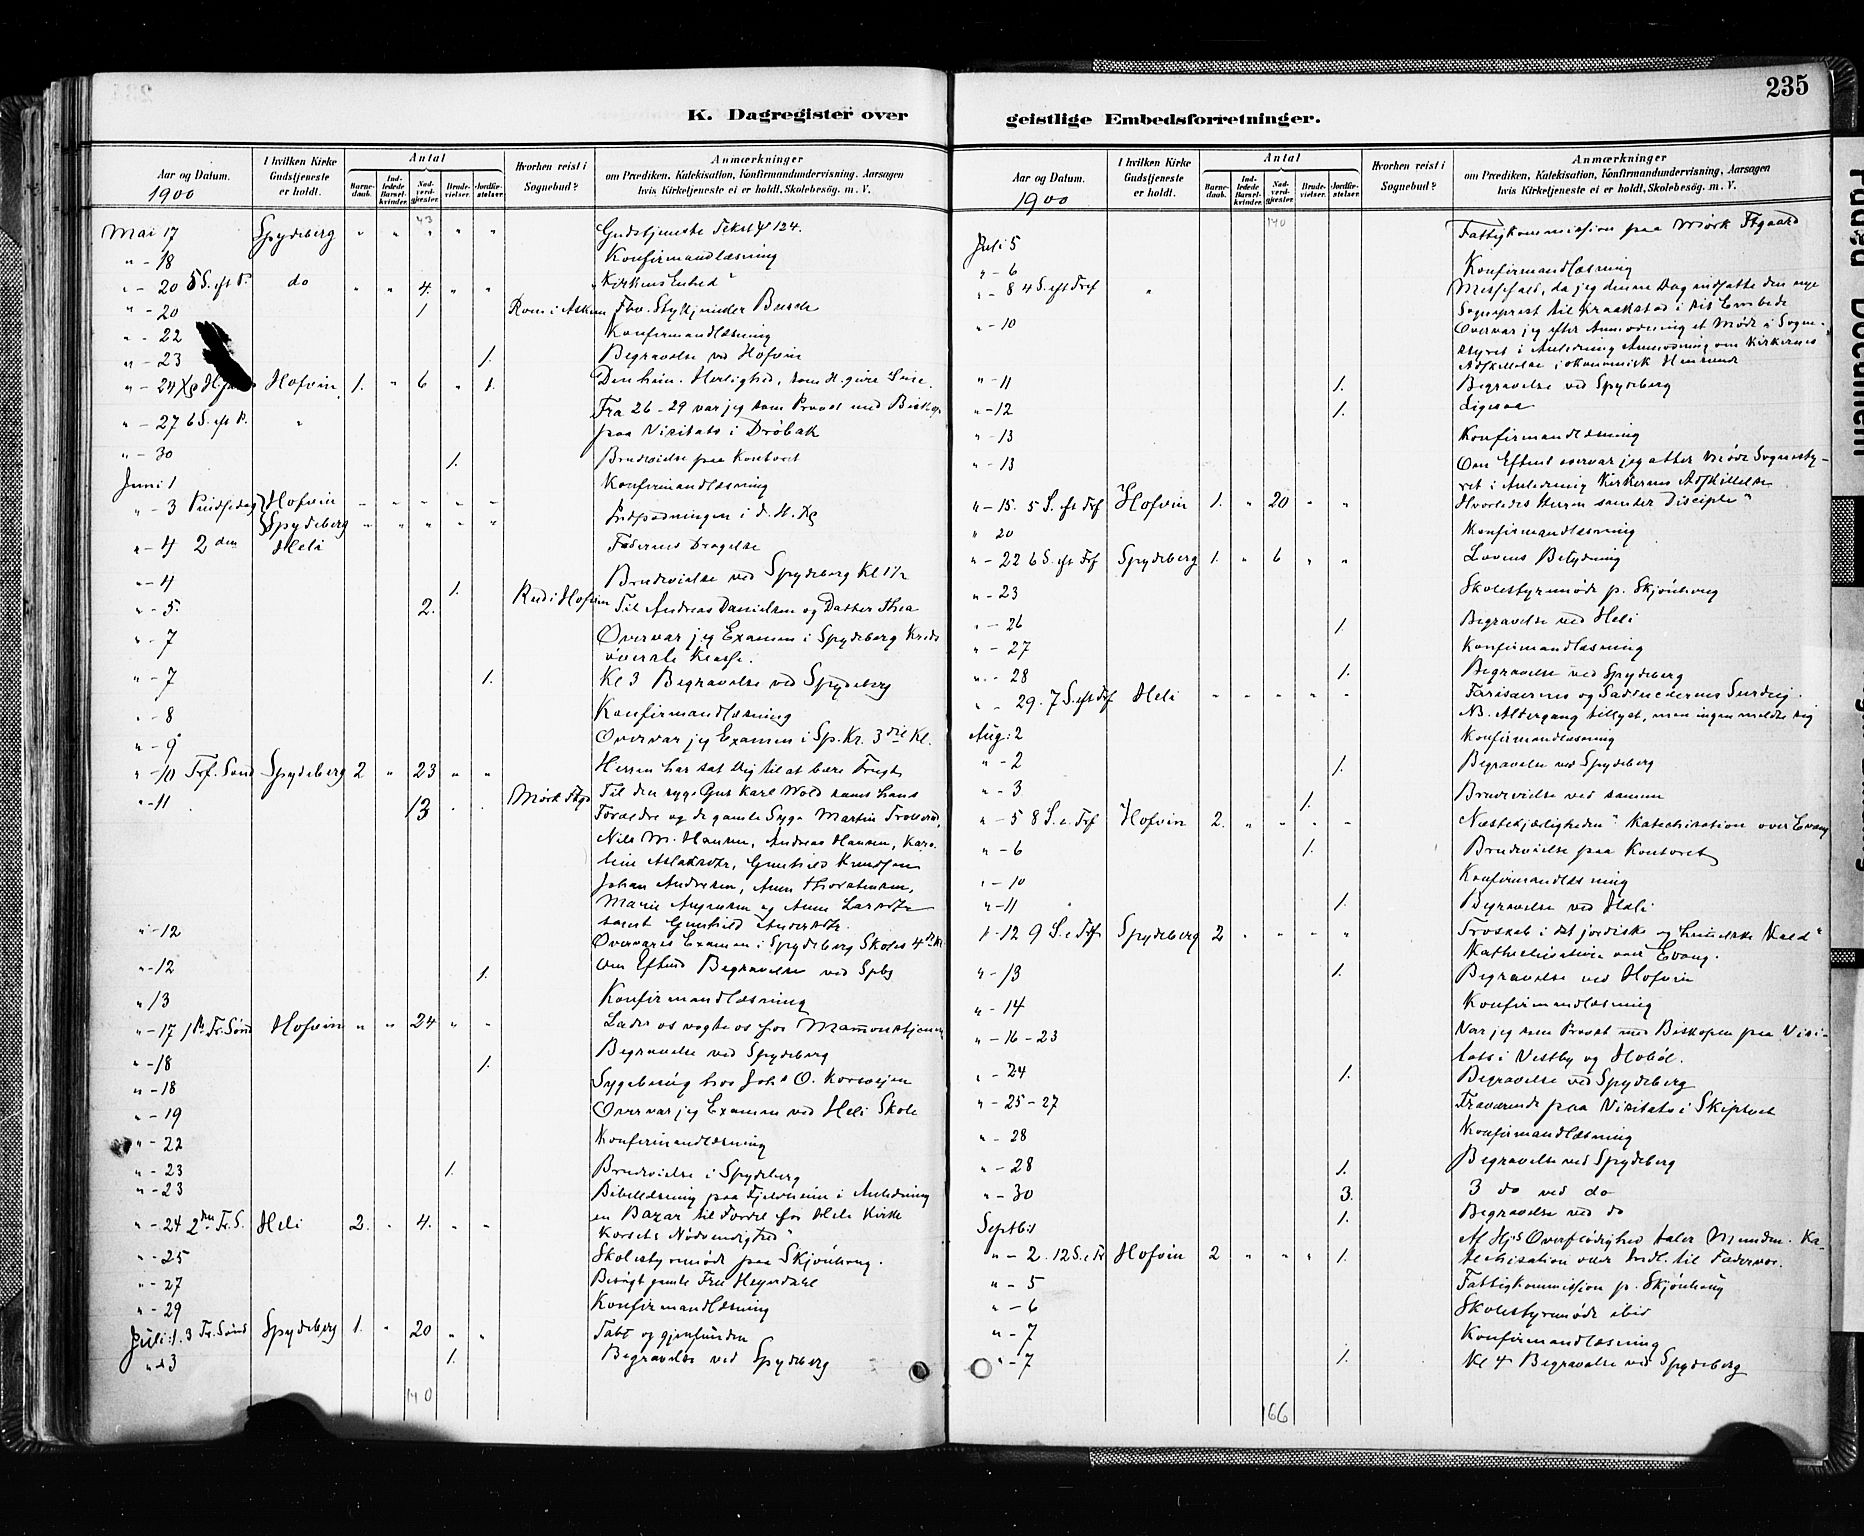 K. Dagregister over
Aar og Datum.
1900
I hvilken Kirke Gudstjeneste er holdt.
Antal
Barnedaab.
Indledede Barselkvinder.
Nadverdgjester.
Brudevielser.
Jordfæstelser.
Hvorhen reist i Sognebud?
Anmærkninger
om Prædiken, Katekisation, Konfirmandundervisning, Aarsagen
hvis Kirketjeneste ei er holdt, Skolebesøg. m. V.
43
Mai 17 Spydeberg " " " " " Gudstjeneste Tekst ψ 124.
" - 18 Konfirmandlæsning
" - 20 5 S. eft P. do " " 4. " " "Kirkens Enhed"
" - 20 1 Rom i Askim Fhv.
" - 22 Konfirmandlæsning
" - 23 1. Begravelse ved Hofvin
" - 24 Hofvin 1. " 6 " 1. Den him. Herlighed, som
" - 27 6 S. eft P. " Fra 26-29 var jeg som Provst med Biskop
paa Visitats i Drøbak
" - 30 1. Brudevielse paa Kontoret
Juni 1 Konfirmandlæsning
" - 3 Pindsedag Hofvin " " " " "
Spydeberg " " " " " Indpodningen i d. H.
" - 4 2den Heli Faderens Dragelse
" - 4 1. Brudevielse ved Spydeberg Kl 1½
" - 5. 2. Rud i Hofvin Til Andreas Danielsen og Datter Thea
" - 7 Overvar jeg Examen i Spydeberg Kreds
øverste Klasse.
" - 7 1. Kl 3 Begravelse ved Spydeberg
" - 8 Konfirmandlæsning
" - 9 Overvar jeg Examen i Sp. Kr. 3die Kl.
" - 10 Trf. Sønd Spydeberg 2 " 23 " " Herren har sat dig til at bære Frugt
" - 11 13 . . Mørk Ftgd Til den syge Gus Karl Wold samt hans
Forældre og de gamle Syge Martin
Nils M. Hansen, Andreas Hansen, Karo-
line Aslaksdtr, Gunhild Knudsen
Johan Andersen, Anne Thorstensen,
Marie og Anne Larsdtr
samt Gunhild Andersdtr.
" - 12 Overvaret Examen i Spydeberg Skoles 4de Kl.
" - 12 1. Om Eftmd Begravelse ved Spbg
" 13 Konfirmandlæsning
" - 17 1ste Tr. Sønd Hofvin " " 24 " " Lader os vogte os for
" - 18 1. Begravelse ved Spydeberg
" - 18 Sygebesøg hos Johs O. Korsvejen
" - 19 Overvar jeg Examen ved Heli Skole
" - 22 Konfirmandlæsning
" - 23 1. Brudevielse i Spydeberg
" - 23 Bibellæsning paa Fjeldheim i Anledning
en Bazar til Fordel for Heli Kirke
" - 24 2den Tr. S. Heli 2. " 4. " " Korsets Nødvendighed"
" - 25 Skolestyremøde paa Skjønhoug.
" - 27 Besøgt gamle Fru Heyerdahl
" - 29 Konfirmandlæsning
Juli: 1. 3 Tr. Sønd Spydeberg 1. " 20 " " Tabt og gjenfunden
" 3 1. Begravelse ved Spydeberg
140
235
geistlige Embedsforretninger.
Aar og Datum.
1900
I hvilken Kirke Gudstjeneste er holdt.
Antal
Barnedaab.
Indledede Barselkvinder.
Nadverdgjester.
Brudevielser.
Jordfæstelser.
Hvorhen reist i Sognebud?
Anmærkninger
om Prædiken, Katekisation, Konfirmandundervisning, Aarsagen
hvis Kirketjeneste ei er holdt, Skolebesøg. m. V.
140
Juli 5 Fattigkommission paa Mørk Ftgaard
" - 6 Konfirmandlæsning
" - 8 4 S. eft Tref " Messefald, da jeg denne Dag indsatte den nye
Sogneprest til Kraakstad i sit Embede
" - 10 Overvar jeg efter Anmodning et Møde i Sogne-
styret i Anledning Anmodning om Kirkernes
Adskillelse i økonomisk Henseende
" - 11 1. Begravelse ved Spydeberg
" - 12 1. Ligesaa
" - 13 Konfirmandlæsning
" - 13 Om Eftmd overvar jeg atter Møde Sognesty-
ret i Anledning Kirkernes Adskillelse
" - 15. 5 S. eft Tref Hofvin 1. " 20 " " Hvorledes Herren samler Disciple"
" 20 Konfirmandlæsning
" - 22 6 S. eft Tref Spydeberg 1. " 6 " " Lovens Betydning
" - 23 Skolestyremøde p. Skjønhoug
" - 26 1. Begravelse ved Heli
" - 27 Konfirmandlæsning
" - 28 1. Begravelse ved Spydeberg
" - 29. 7 S. eft Tref Heli " " " " " Farisæernes og Sadducæernes Surdeig.
NB. Altergang tillyst, men ingen meldte sig
Aug: 2 Konfirmandlæsning
" - 2 1. Begravelse ved Spydeberg
" - 3 1. Brudevielse ved samme
" - 5 8 S. e. Tref Hofvin 2. " " " " Næstekjærligheden" Katechisation over Evang
" - 6 1. Brudevielse paa Kontoret
" - 10 Konfirmandlæsning
" - 11 1. Begravelse ved Heli
" - 12 9 S. e Tref Spydeberg 2 " " " " Troskab i det jordiske og himelske Kald"
Kathechisation over Evang.
" - 13 1. Begravelse ved Hofvin
" - 14 Konfirmandlæsning
" - 16 - 23 Var jeg som Provst med Biskopen paa Visi-
tats i Vestby og Hobøl.
" - 24 1. Begravelse ved Spydeberg
" - 25 - 27 Fraværende paa Visitats i Skiptvet
" - 28 Konfirmandlæsning
" - 28 1. Begravelse ved Spydeberg
" - 30 3. 3 do ved do
Septbr 1 1. Begravelse ved do
" - 2. 12 S. e Tr Hofvin 2 " " " 1. Af Hj's Overflødighed taler Munden. Ka-
techisation over Indl. til Fadervor.
" - 5 Fattigkommission p. Skjønhoug
" - 6 Skolestyremøde ibid
" - 7 Konfirmandlæsning
" - 7 1. Kl 4 Begravelse ved Spydeberg
166